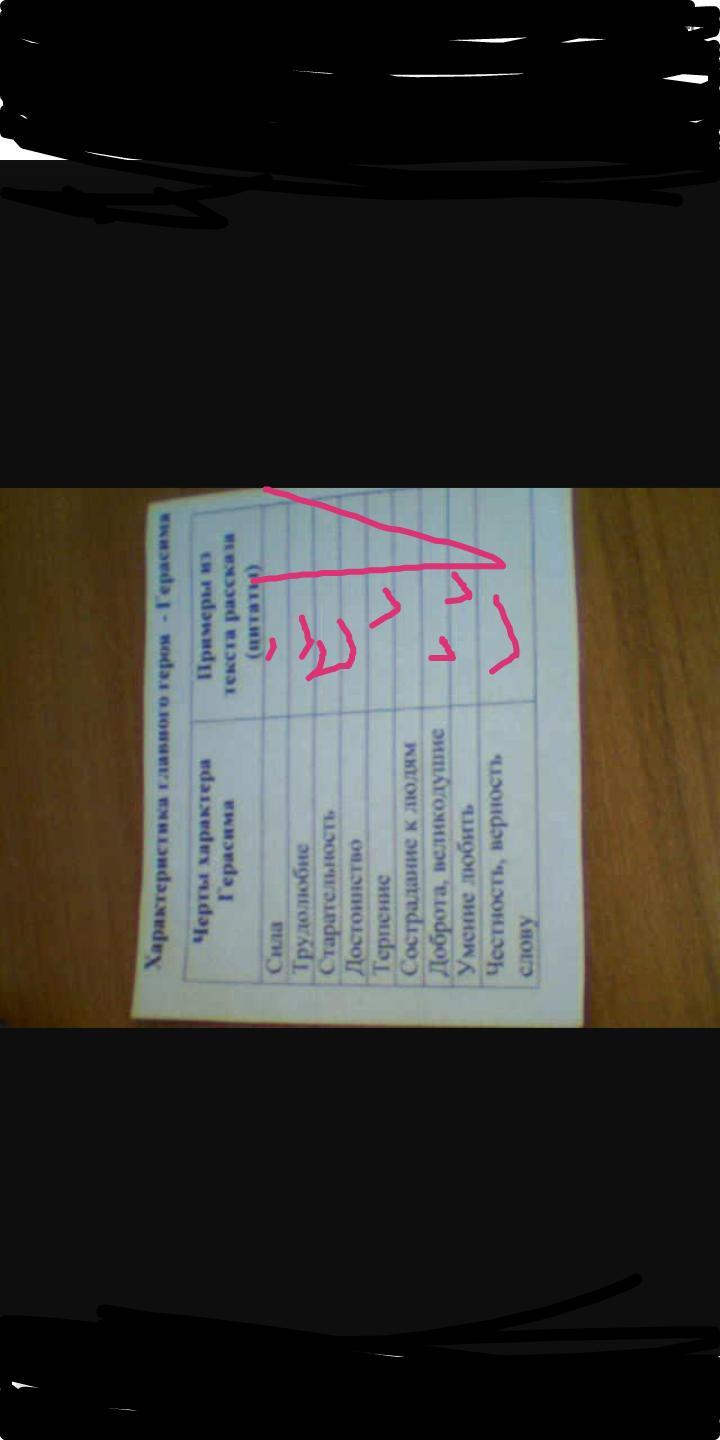 Характеристика главного героя - Герасима
Черты характера
Герасима
Примеры из
текста рассказа
(цитаты)
Сила
Трудолюбие
Старательность
Достоинство
Терпение
Сострадание к людям
Доброта, великодушие
Умение любить
Честность, верность
слову